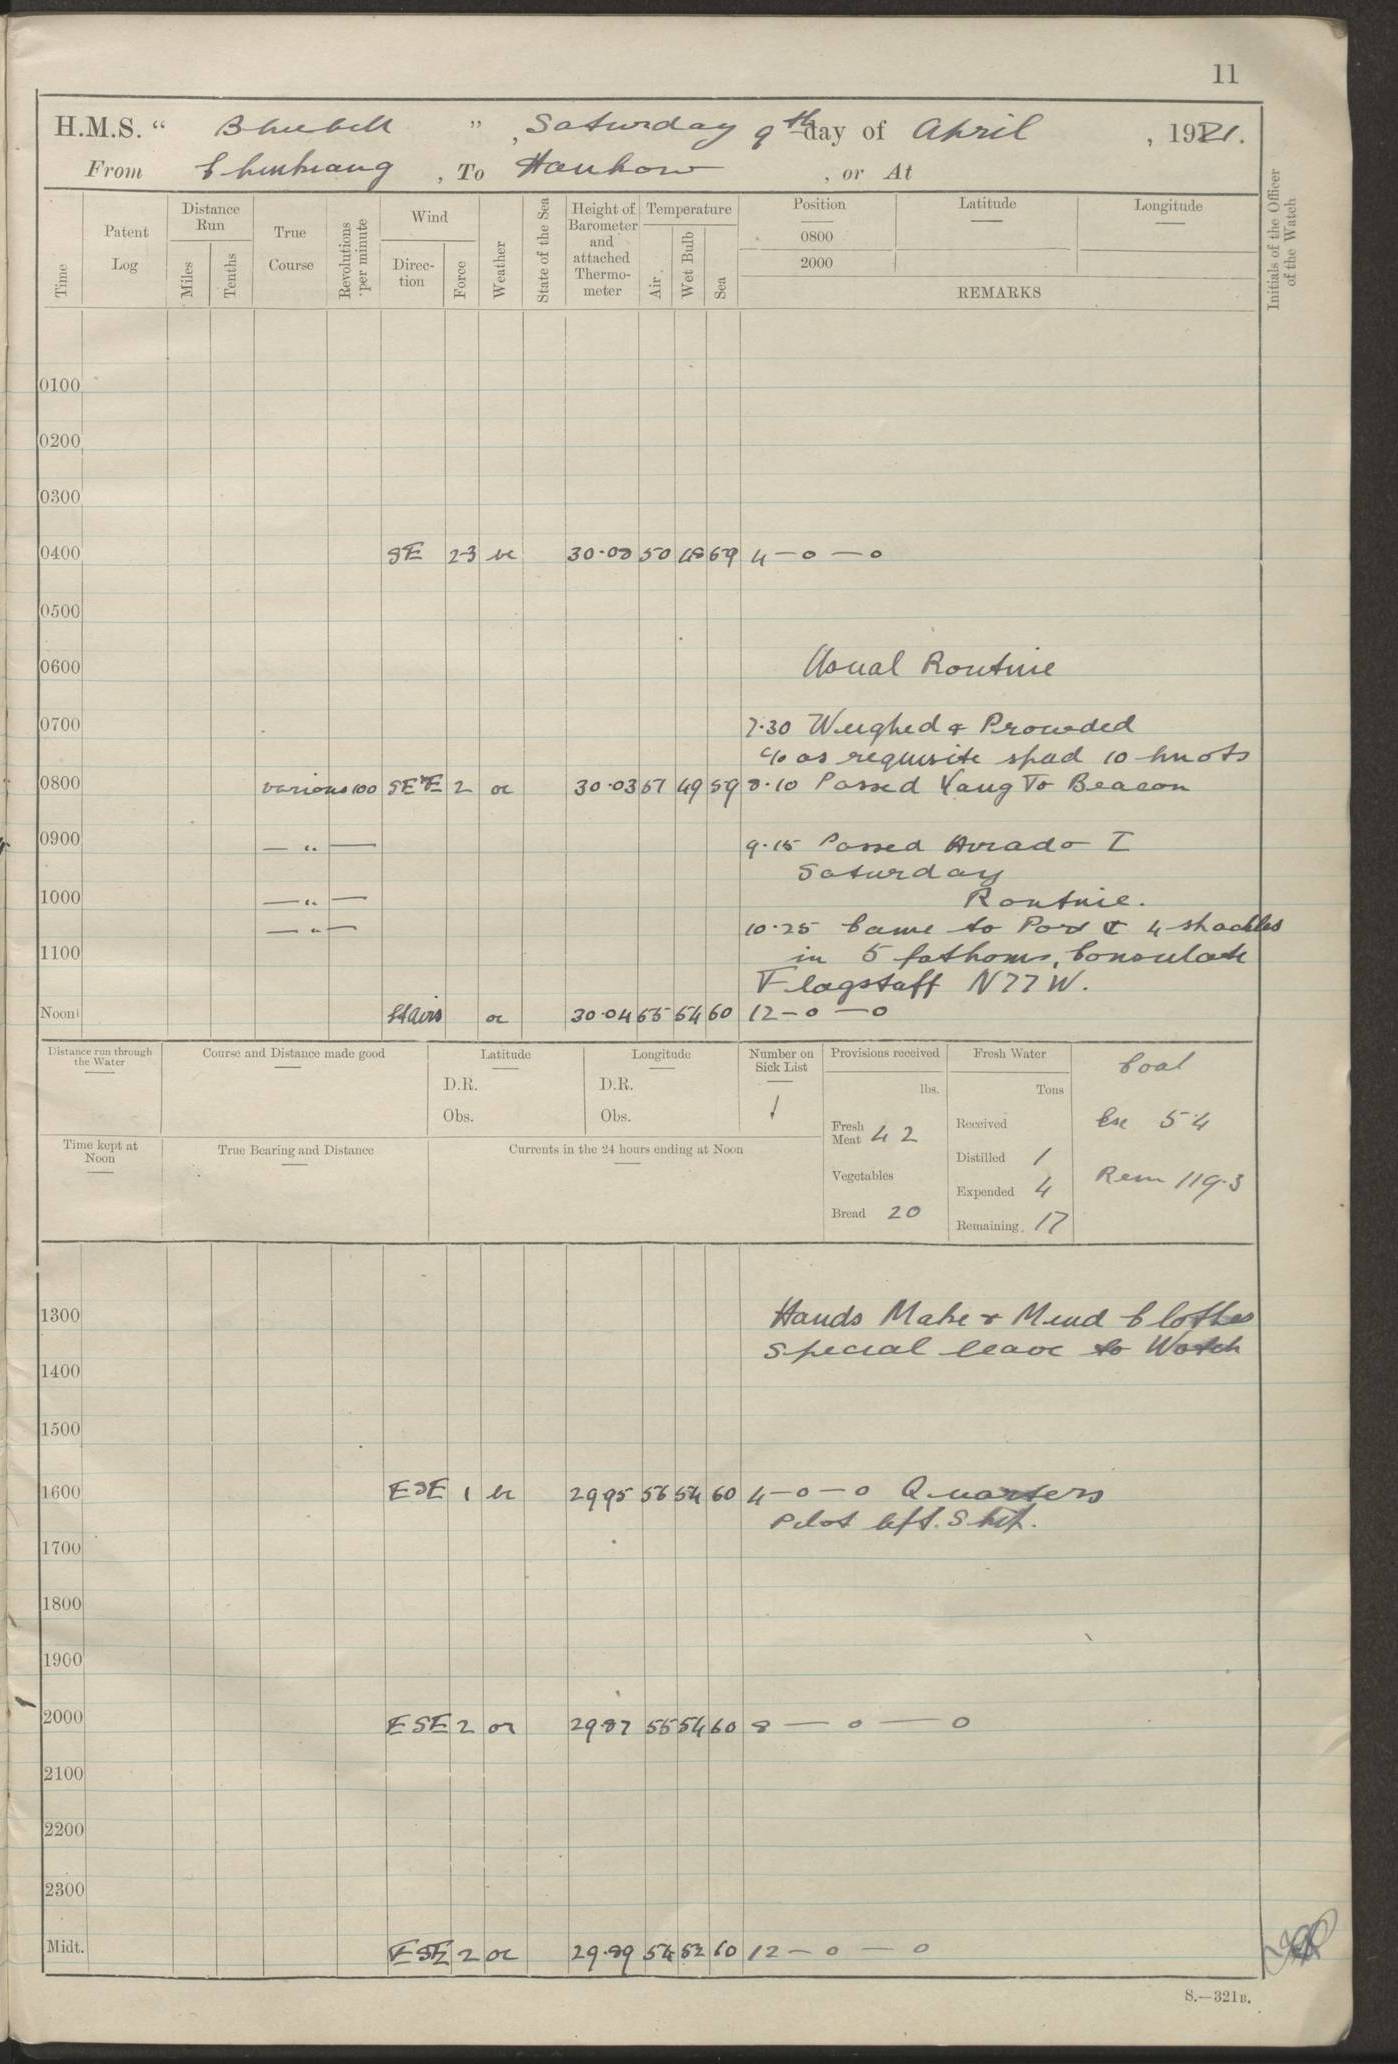 11
H.M.S. “ Bluebell ” , Saturday 9th day of April , 1921.
From Chinkiang , To Hankow , or At
Time
Patent Log
Distance Run
Miles
Tenths
True Course
Revolutions per minute
Wind
Direc- tion
Force
Weather
State of the Sea
Height of Barometer and attached Thermo- meter
Temperature
Air
Wet Bulb
Sea
Position
0800
2000
Latitude
Longitude
REMARKS
Initials of the Officer of the Watch
0100
0200
0300
0400 SE 2-3 bc 50 4 — o — o
0500
0600 Usual Routine
0700 7.30 Weighed & Proceeded
C/o as requisite speed 10 knots
0800 various 100 2 oc 30.03 51 49 59 8.10 Passed Yang To Beacon
0900 — " — 9.15 Passed I
Saturday
1000 — " — Routine.
— " — 10.25 Came to Port 4 shackles
1100 in 5 fathoms, Consulate
Flagstaff N77W.
Noon Airs oc 30.04 55 54 60 12 — o — o
Distance run through the Water
Course and Distance made good
Latitude
D.R.
Obs.
Longitude
D.R.
Obs.
Number on Sick List
1
Provisions received
lbs.
Fresh Meat 42
Vegetables
Bread 20
Fresh Water
Tons
Received
Distilled 1
Expended 4
Remaining 17
Coal
Exe 5.4
Rem 119.3
Time kept at Noon
True Bearing and Distance
Currents in the 24 hours ending at Noon
1300 Hands Make & Mend Clothes
Special leave to Watch
1400
1500
1600 ESE 1 bc 29.95 56 54 60 4 — o — o Quarters
Pilot left Ship.
1700
1800
1900
2000 ESE 2 oc 29.87 55 54 60 8 — o — o
2100
2200
2300
Midt. ESE 2 oc 29.89 54 52 60 12 — o — o
S.—321B.